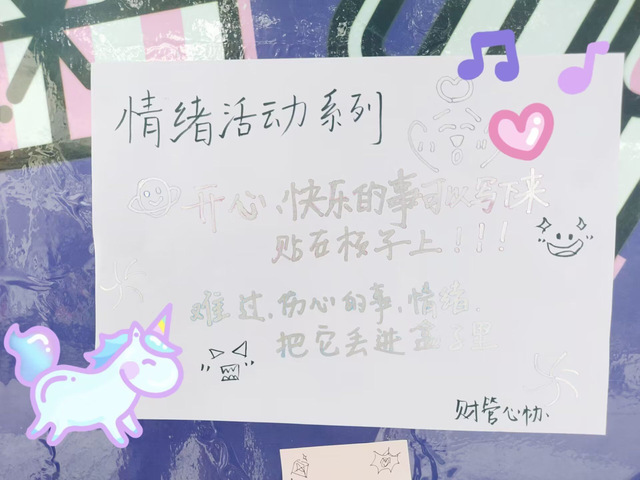 情绪活动系列
开心、快乐的事可以写下来
贴在板子上！！！
难过、伤心的事、情绪、
把它丢进盒子里
财管心协